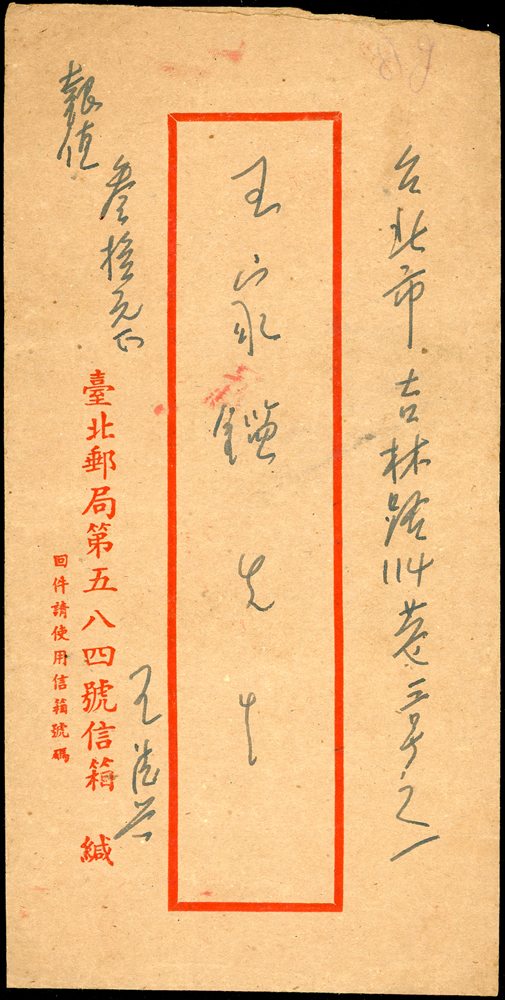 台北市吉林路114巷三号之一
王家鑑先生
報值
叁拾元正
臺北郵局第五八四號信箱 緘
回件請使用信箱號碼